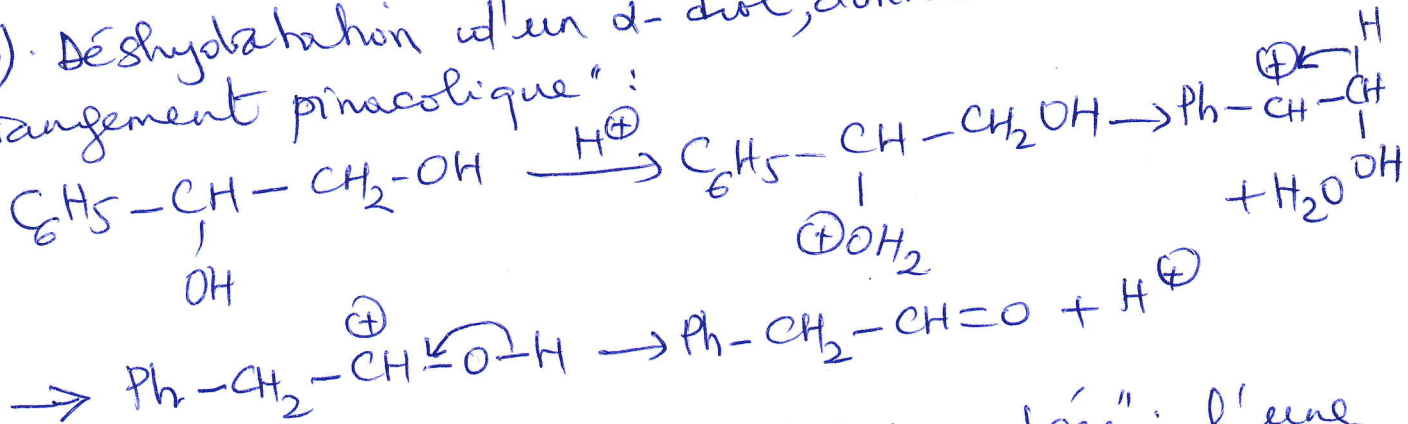 ). Déshydratation d'un α- diol,
angement pinacolique" :
C6H5 – CH – CH2-OH —H⊕→ C6H5 – CH – CH2OH → Ph – CH – CH
OH ⊕OH2 ⊕ H OH + H2O
→ Ph – CH2 – CH – O – H → Ph – CH2 – CH = O + H⊕
⊕
D'une